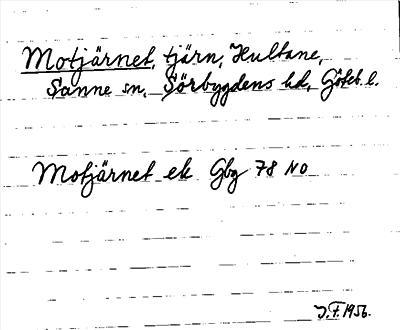 Motjärnet, tjärn, Hultane,
Sanne sn, Sörbygdens hd, Göteb. l.
Motjärnet ek Gbg 78 NO
J.F. 1956.